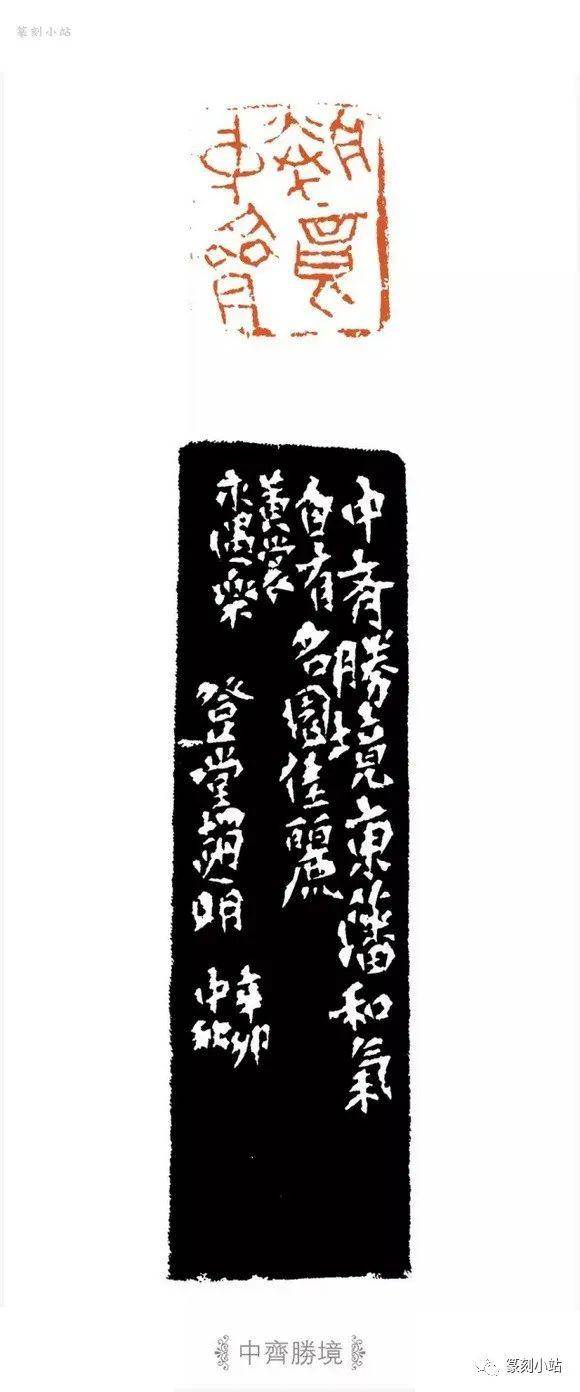 篆刻小站
中齊勝境東藩和氣
自有名園佳麗
黃裳
永遇樂
登堂趙明
辛卯
中秋
中齊勝境
篆刻小站